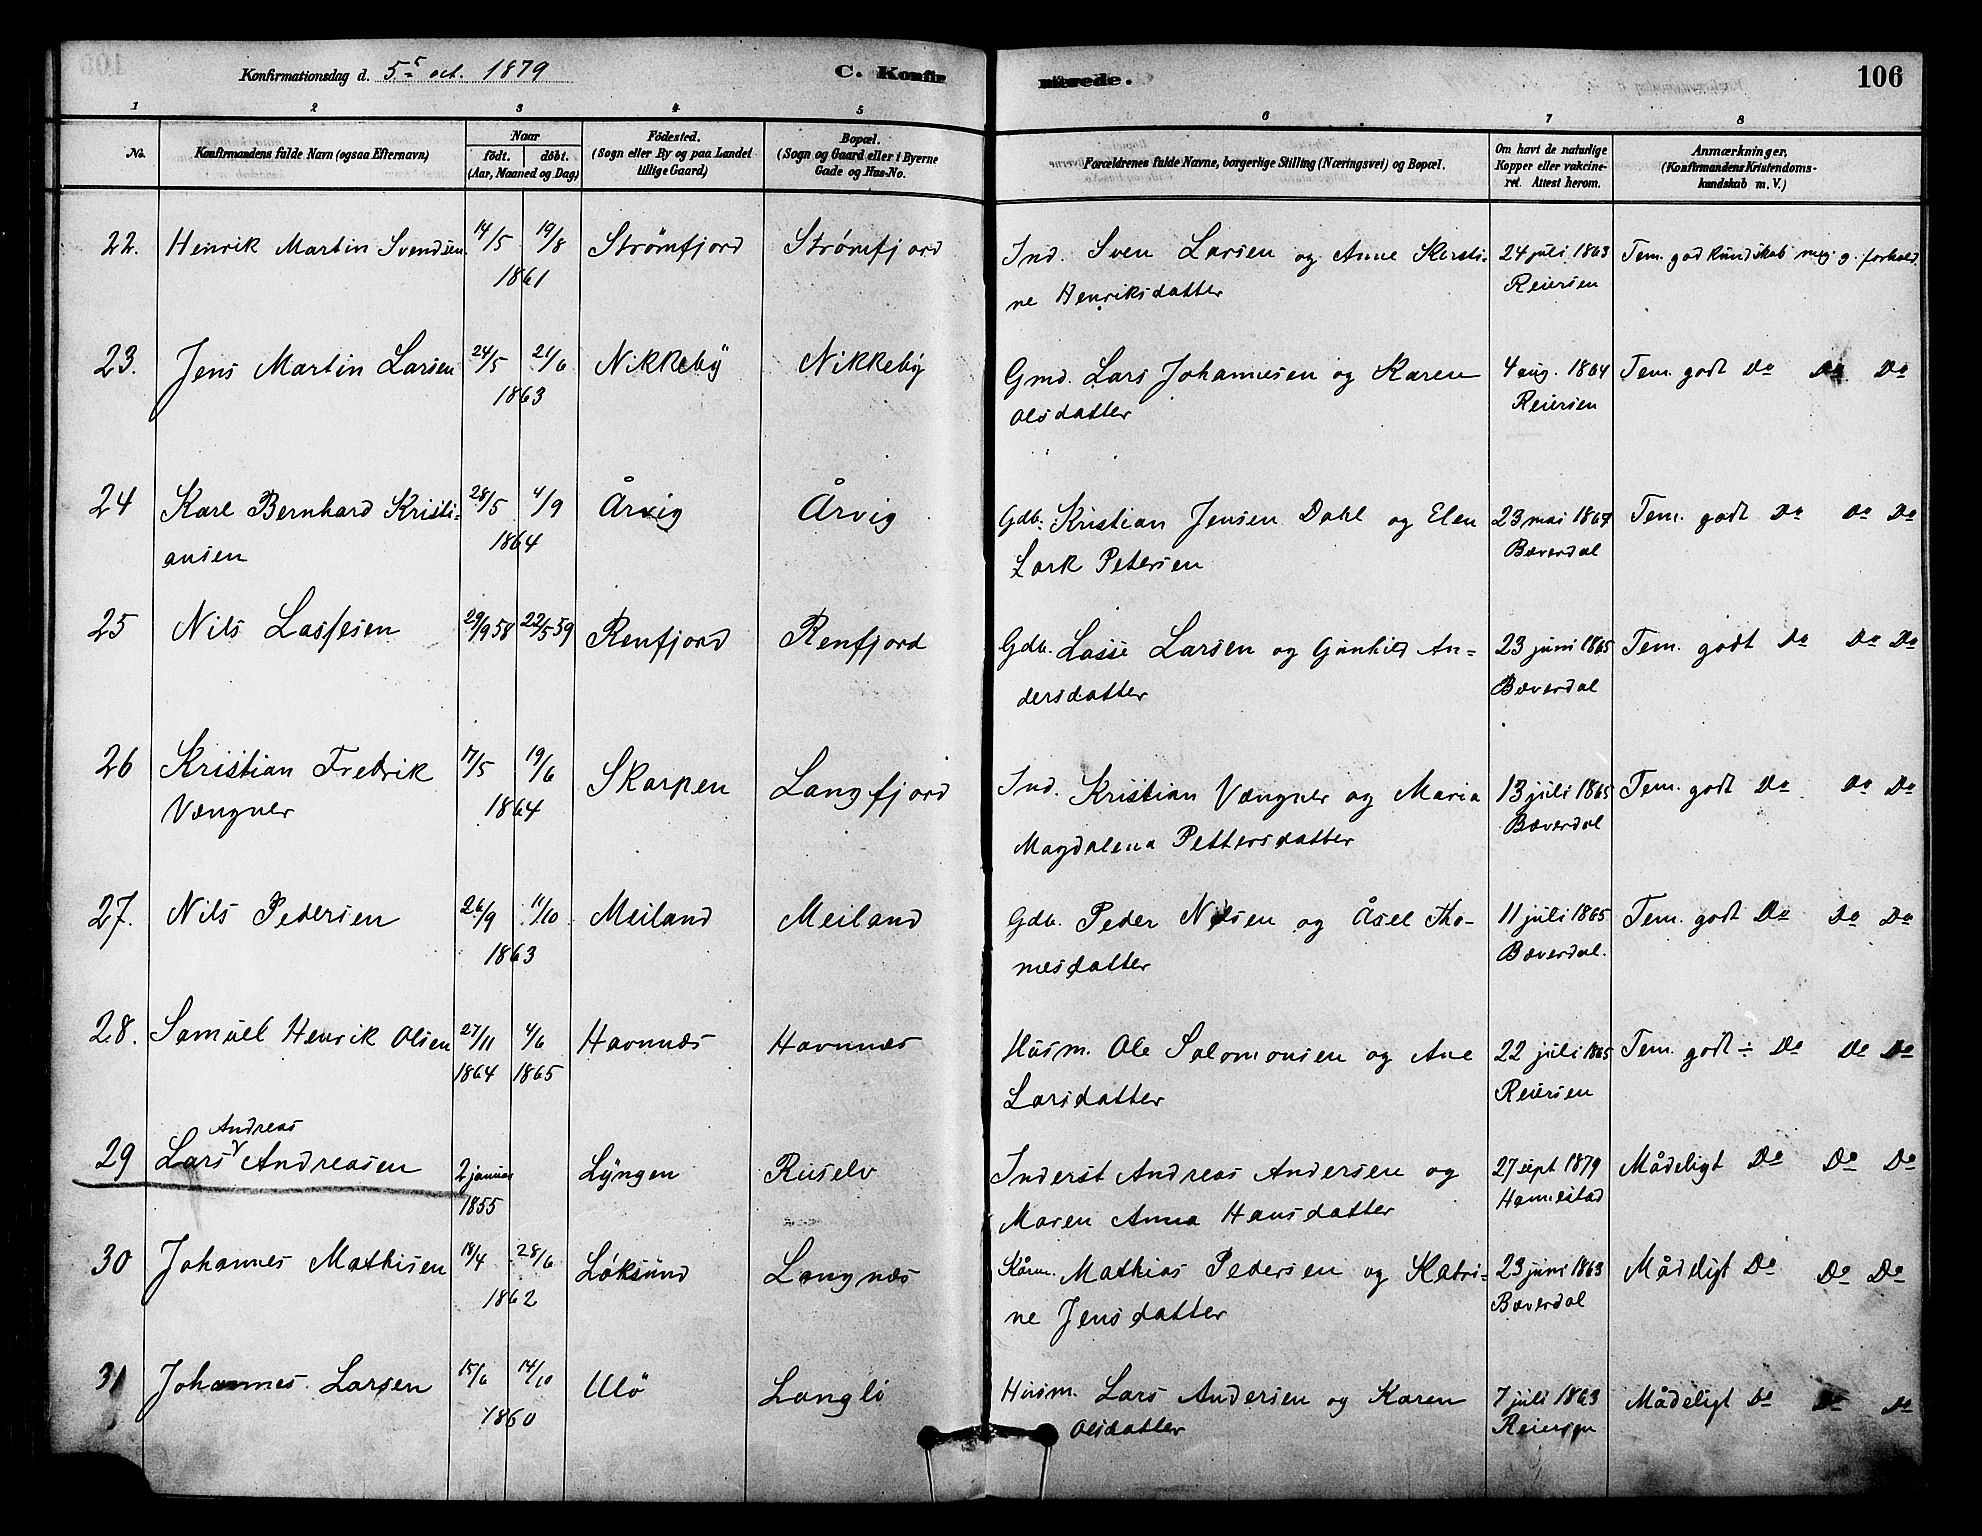 Konfirmationsdag d. 5te oct. 1879 C. Konfirmerede. 106
1 2 3 4 5 6 7 8
No. Konfirmandens fulde Navn (ogsaa Efternavn) Naar født. døbt. (Aar, Maaned og Dag) Fødested. (Sogn eller By og paa Landet tillige Gaard) Bopæl. (Sogn og Gaard eller i Byerne Gade og Hus-No. Forældrenes fulde Navne, borgerlige Stilling (Næringsvei) og Bopæl. Om havt de naturlige Kopper eller vakcineret. Attest herom. Anmærkninger, (Konfirmandens Kristendomskundskab m. V.)
22. Henrik Martin Svendsen 14/5 19/8 Strömfjord Strømfjord Ind. Sven Larsen og Anne Kirsti- 24 juli 1863 Tem. god kundskab meg. g. forhold
1861 ne Henriksdatter Reiersen
23. Jens Martin Larsen 24/5 21/6 Nikkeby Nikkeby Gmd. Lars Johannesen og Karen 4 aug. 1864 Tem. godt Do Do Do
1863 Olsdatter Reiersen
24 Karl Bernhard Kristi- 28/5 4/9 Årvig Årvig Gdb. Kristian Jensen Dahl og Elen 23 mai 1867 Tem. godt Do Do Do
ansen 1864 Lark Petersen Bæverdal
25 Nils Lassesen 29/9 58 22/5 59 Renfjord Renfjord Gdb. Lasse Larsen og Gunhild An- 23 juni 1865 Tem. godt Do Do Do
dersdatter Bæverdal
26 Kristian Fredrik 17/5 19/6 Skarpen Langfjord Ind. Kristian Vængner og Maria 13 juli 1865 Tem. godt Do Do Do
Vængner 1864 Magdalena Pettersdatter Bæverdal
27. Nils Pedersen 26/9 11/10 Meiland Meiland Gdb. Peder Nilsen og Åsel Tho- 11 juli 1865 Tem. godt Do Do Do
1863 mesdatter Bæverdal.
28. Samuel Henrik Olsen 27/11 4/6 Havnnæs Havnnæs Husm. Ole Salomonsen og Ane 22 juli 1865 Tem. godt ÷ Do Do Do
1864 1865 Larsdatter Reiersen
Andreas
29 Lars Andreasen 2 januar Lyngen Ruselv Inderst Andreas Andersen og 27 sept 1879 Mådeligt Do Do Do
1855 Maren Anna Hansdatter Hannestad
30 Johannes Mathisen 18/4 28/6 Løksund Langnæs Kårm. Mathias Pedersen og Katri- 23 juni 1863 Mådeligt Do Do Do
1862 ne Jensdatter Bæverdal
31 Johannes Larsen 15/6 14/10 Ulö Langli Husm. Lars Andersen og Karen 7 juli 1863 Mådeligt Do Do Do
1860 Olsdatter Reiersen